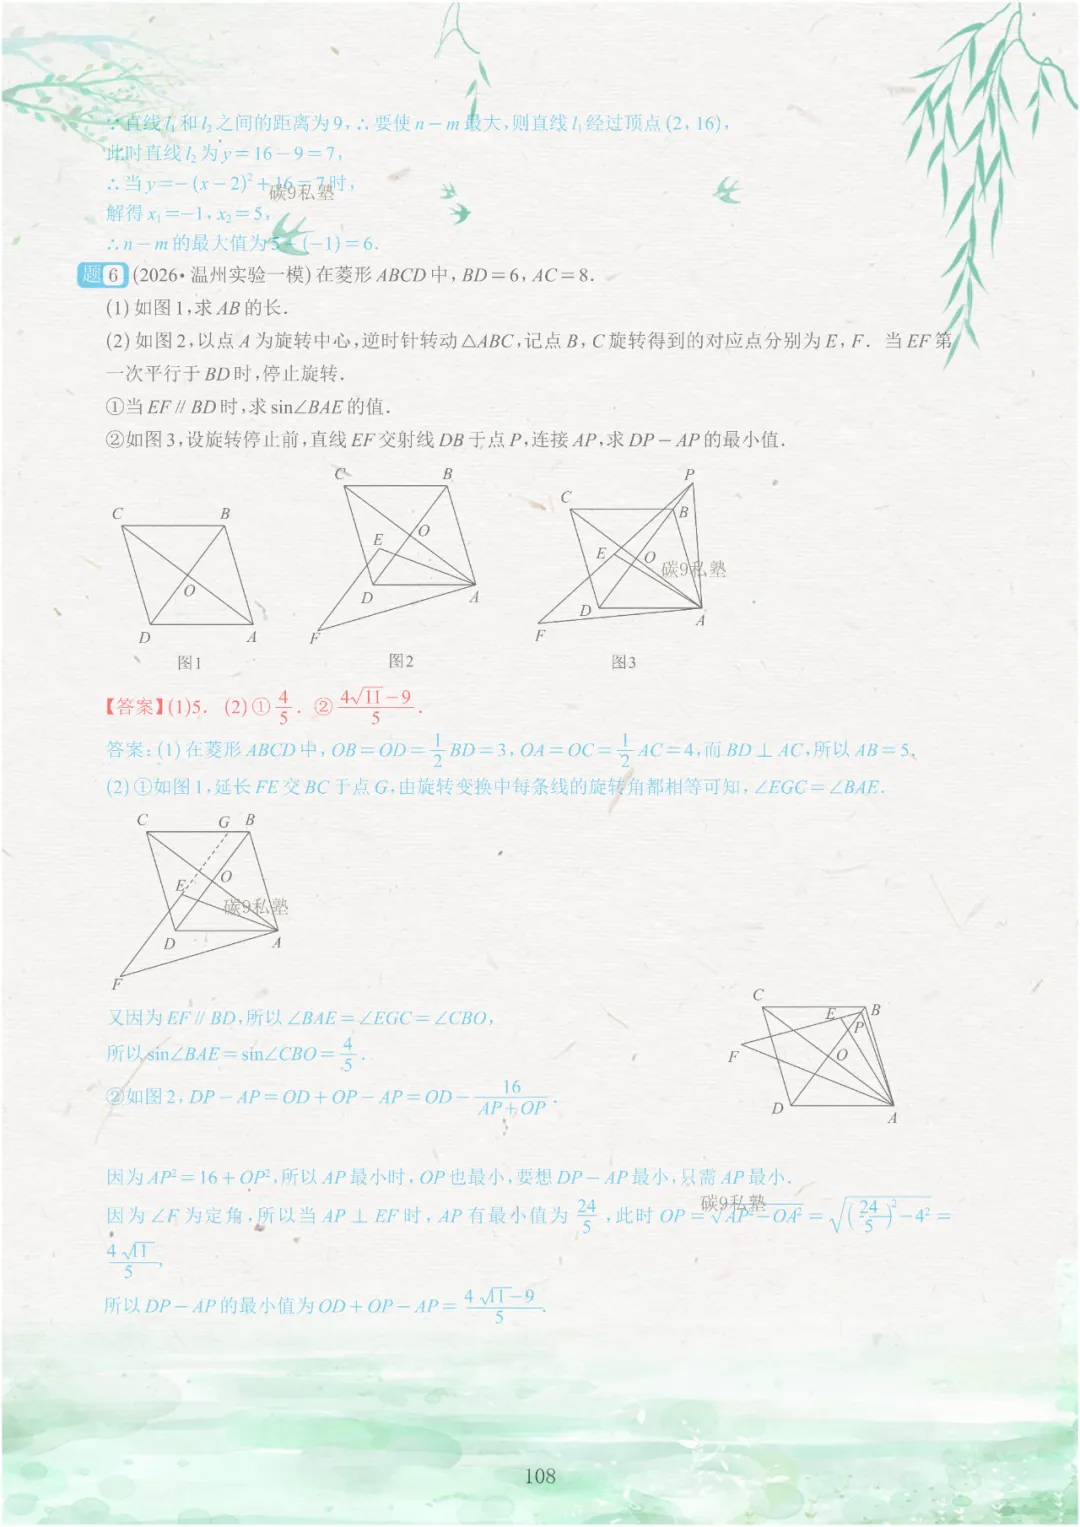 ∵直线 l₁ 和 l₂ 之间的距离为 9，∴要使 n－m 最大，则直线 l₁ 经过顶点 (2，16)，
此时直线 l₂ 为 y＝16－9＝7，
∴当 y＝－(x－2)²＋16＝7 时，
碳9私塾
解得 x₁＝－1，x₂＝5，
∴n－m 的最大值为 5－(－1)＝6．
题6 (2026·温州实验一模) 在菱形 ABCD 中，BD＝6，AC＝8．
(1) 如图 1，求 AB 的长．
(2) 如图 2，以点 A 为旋转中心，逆时针转动△ABC，记点 B，C 旋转得到的对应点分别为 E，F． 当 EF 第
一次平行于 BD 时，停止旋转．
①当 EF∥BD 时，求 sin∠BAE 的值．
②如图 3，设旋转停止前，直线 EF 交射线 DB 于点 P，连接 AP，求 DP－AP 的最小值．
C B O D A
图1
C B E O D A F
图2
P C B E O D A F
碳9私塾
图3
【答案】(1)5． (2)① 4/5 ． ② (4√11－9)/5 ．
答案：(1) 在菱形 ABCD 中，OB＝OD＝1/2 BD＝3，OA＝OC＝1/2 AC＝4，而 BD⊥AC，所以 AB＝5．
(2)①如图 1，延长 FE 交 BC 于点 G，由旋转变换中每条线的旋转角都相等可知，∠EGC＝∠BAE．
C G B E O D A F
碳9私塾
又因为 EF∥BD，所以∠BAE＝∠EGC＝∠CBO，
所以 sin∠BAE＝sin∠CBO＝4/5 ．
C E B P F O D A
②如图 2，DP－AP＝OD＋OP－AP＝OD－16/(AP＋OP) ．
因为 AP²＝16＋OP²，所以 AP 最小时，OP 也最小，要想 DP－AP 最小，只需 AP 最小．
碳9私塾
因为∠F 为定角，所以当 AP⊥EF 时，AP 有最小值为 24/5 ，此时 OP＝√(AP²－OA²)＝√((24/5)²－4²)＝
4√11/5，
所以 DP－AP 的最小值为 OD＋OP－AP＝(4√11－9)/5．
108